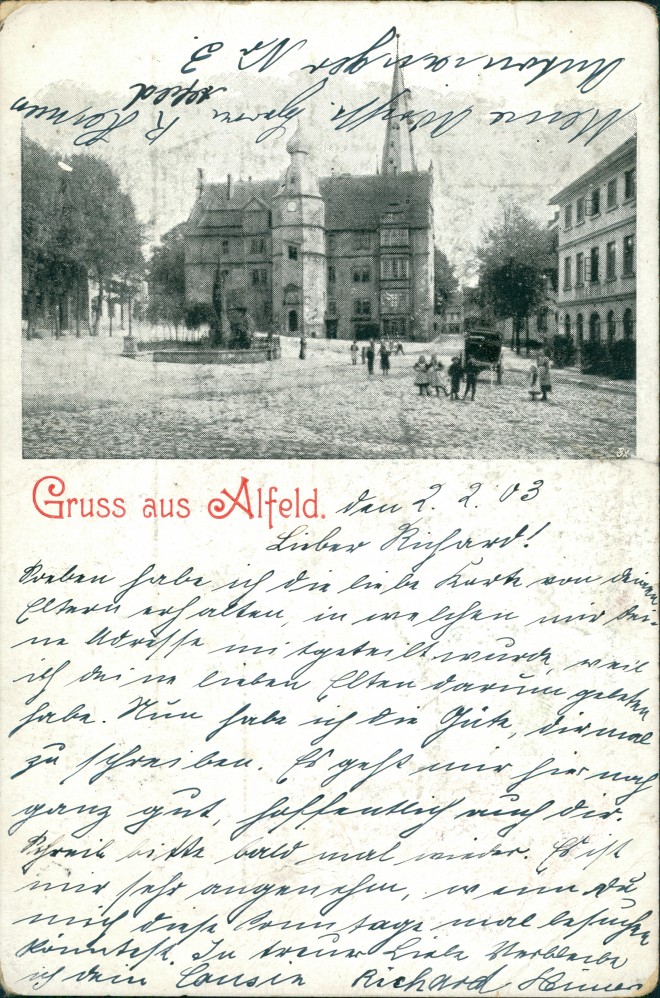 Gruss aus Alfeld. den 2. 2. 03
Lieber Richard!
Soeben habe ich die liebe Karte von deinen
Eltern erhalten, in welchen mir dei-
ne Adresse mitgeteilt wurde, weil
ich deine lieben Elten darum gebeten
habe. Nun habe ich die Güte, dir mal
zu schreiben. Es geht mir hier noch
ganz gut, hoffentlich auch dir.
Schreib bitte bald mal wieder. Es ist
mir sehr angenehm, wenn Du
mich diese Sonntage mal besuchen
könntest. In treuer Liebe Verbleibe
ich dein Cousin Richard
Meine Adresse: Herrn R.
No 3.